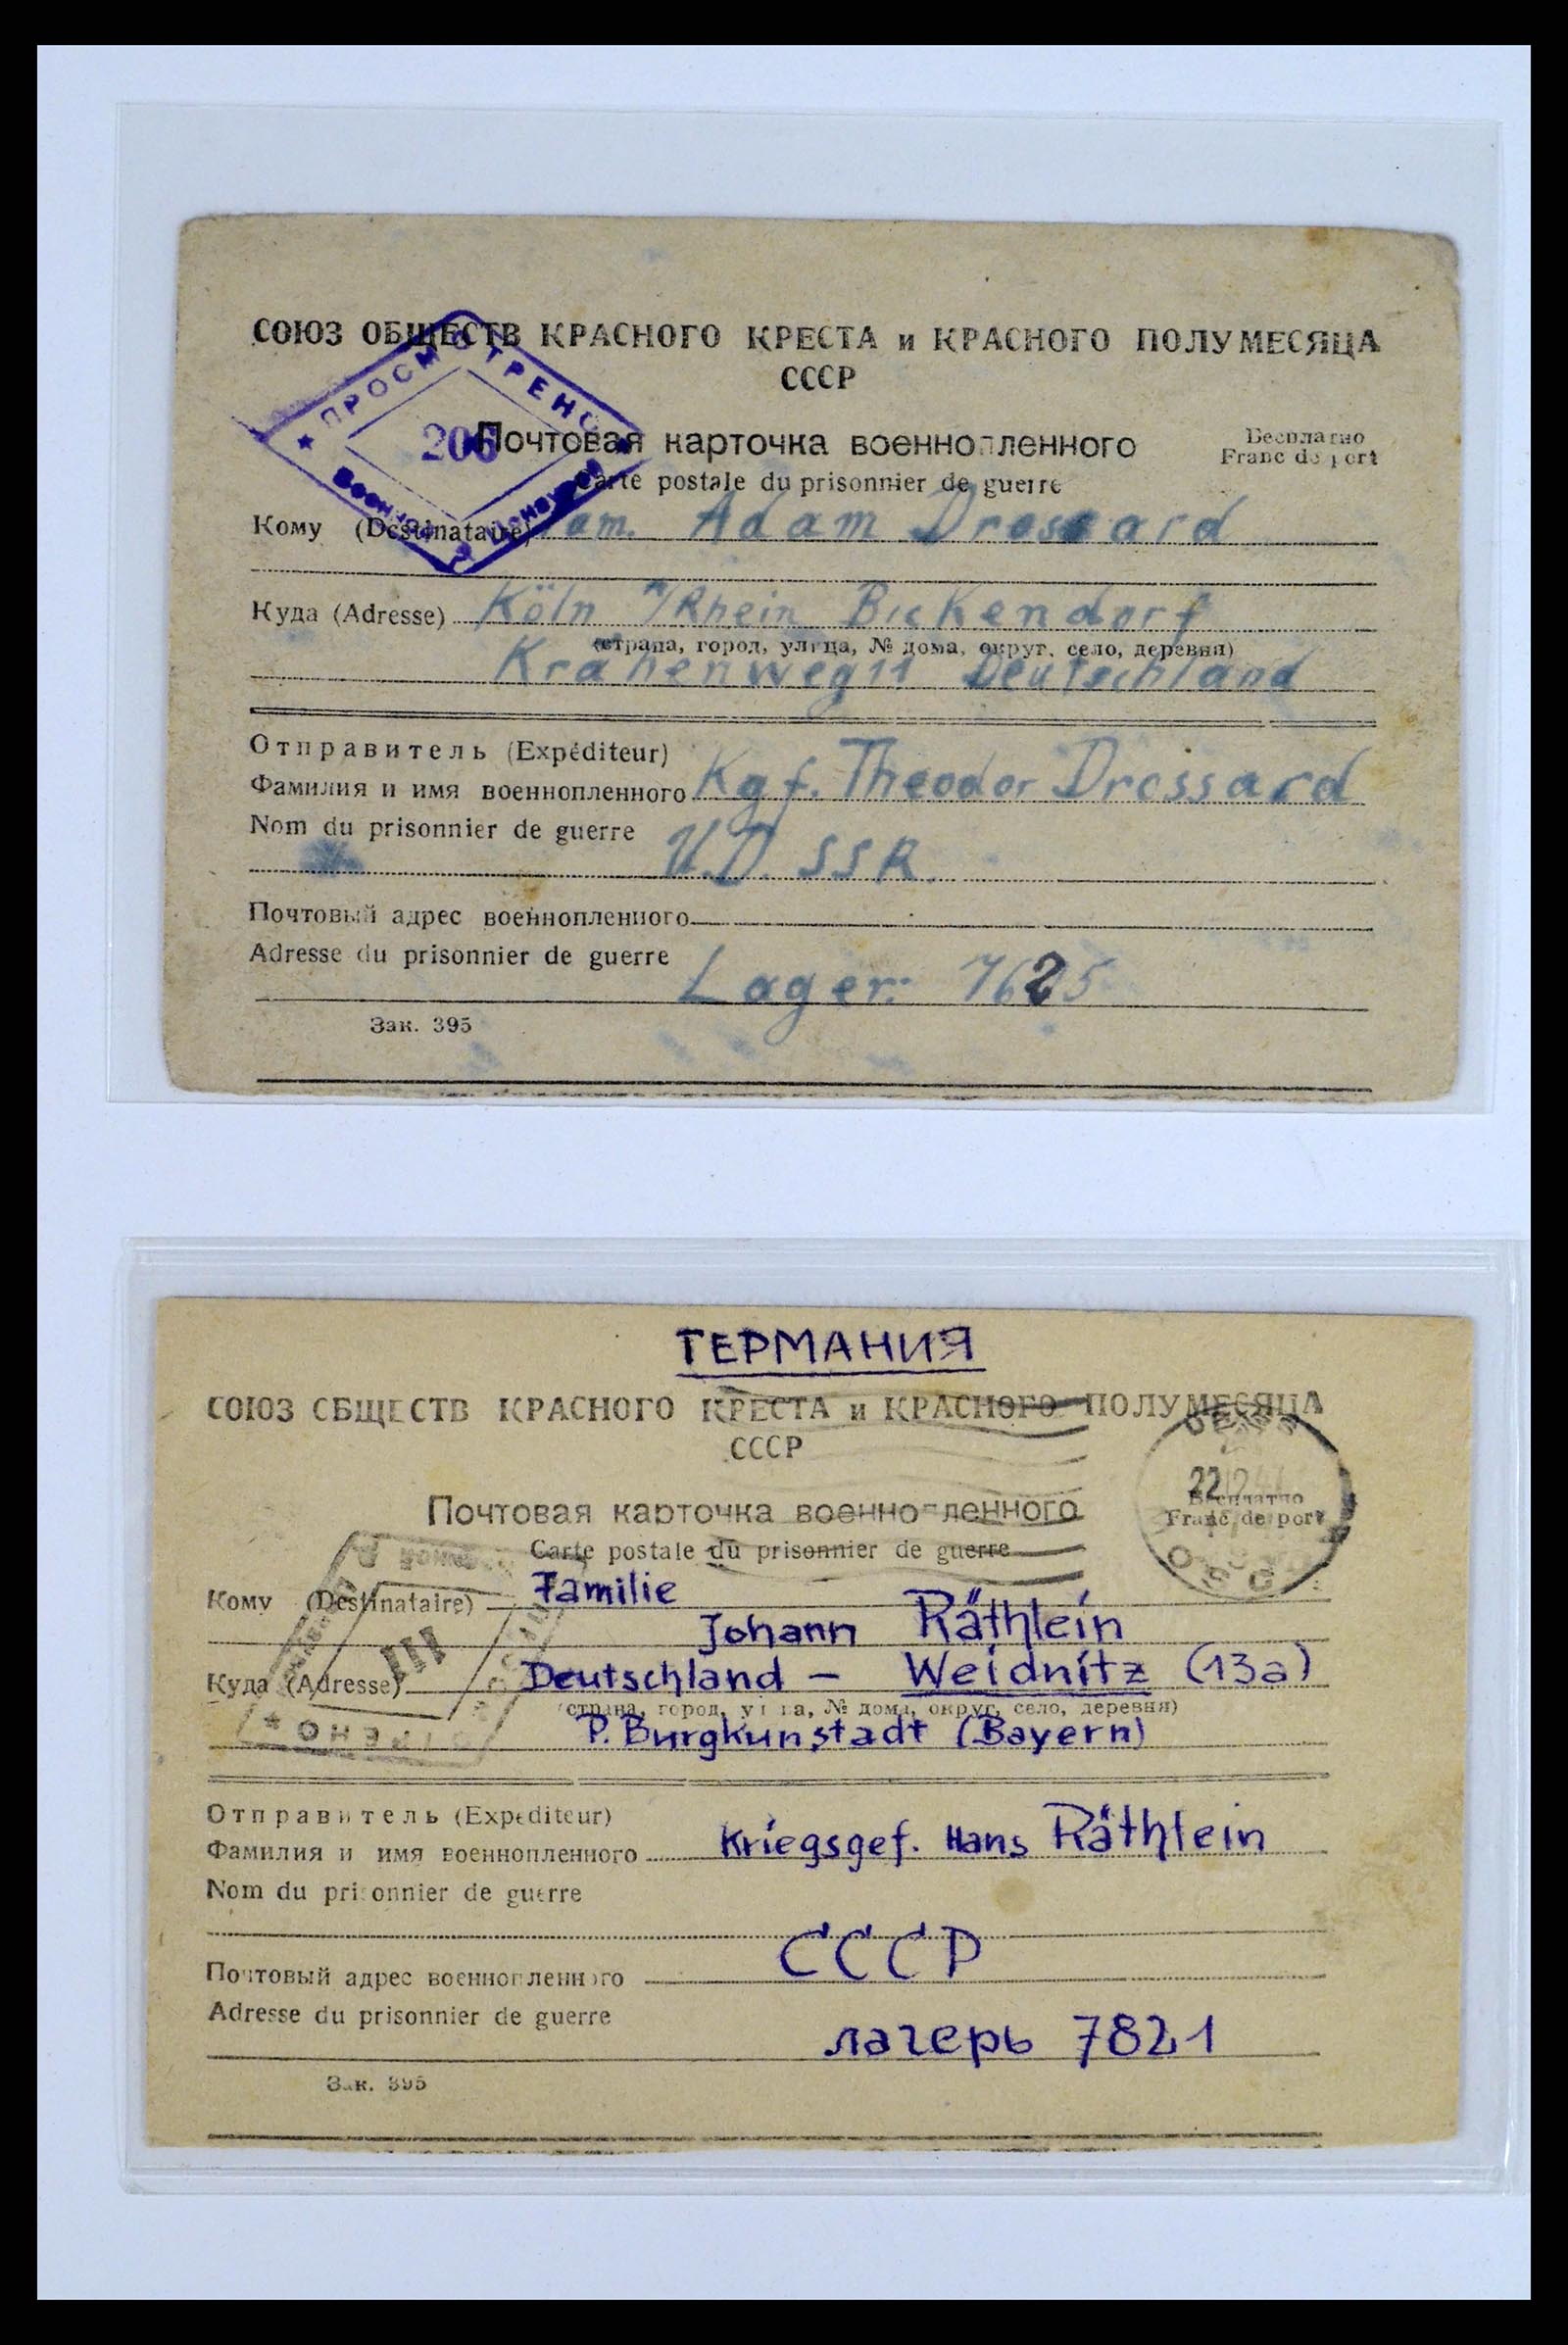 СОЮЗ ОБЩЕСТВ КРАСНОГО КРЕСТА и КРАСНОГО ПОЛУМЕСЯЦА
СССР
ПРОСМОТРЕНО
206
Почтовая карточка военнопленного
Бесплатно
Carte postale du prisonnier de guerre
Franc de port
Кому (Destinataire) Fam. Adam Drossard
Куда (Adresse) Köln a/Rhein Bickendorf
(страна, город, улица, № дома, округ, село, деревня)
Krähenweg 11 Deutschland
Отправитель (Expéditeur)
Фамилия и имя военнопленного Kgf. Theodor Drossard
Nom du prisonnier de guerre
U.D. SSR.
Почтовый адрес военнопленного
Adresse du prisonnier de guerre
Lager: 7625
Зак. 395
ГЕРМАНИЯ
СОЮЗ ОБЩЕСТВ КРАСНОГО КРЕСТА и КРАСНОГО ПОЛУМЕСЯЦА
СССР
22
Бесплатно
Почтовая карточка военнопленного
Franc de port
Carte postale du prisonnier de guerre
Кому (Destinataire) Familie
Johann Räthlein
Куда (Adresse) Deutschland – Weidnitz (13a)
(страна, город, улица, № дома, округ, село, деревня)
P. Burgkunstadt (Bayern)
Отправитель (Expéditeur)
Фамилия и имя военнопленного Kriegsgef. Hans Räthlein
Nom du prisonnier de guerre
СССР
Почтовый адрес военнопленного
Adresse du prisonnier de guerre
лагерь 7821
Зак. 395